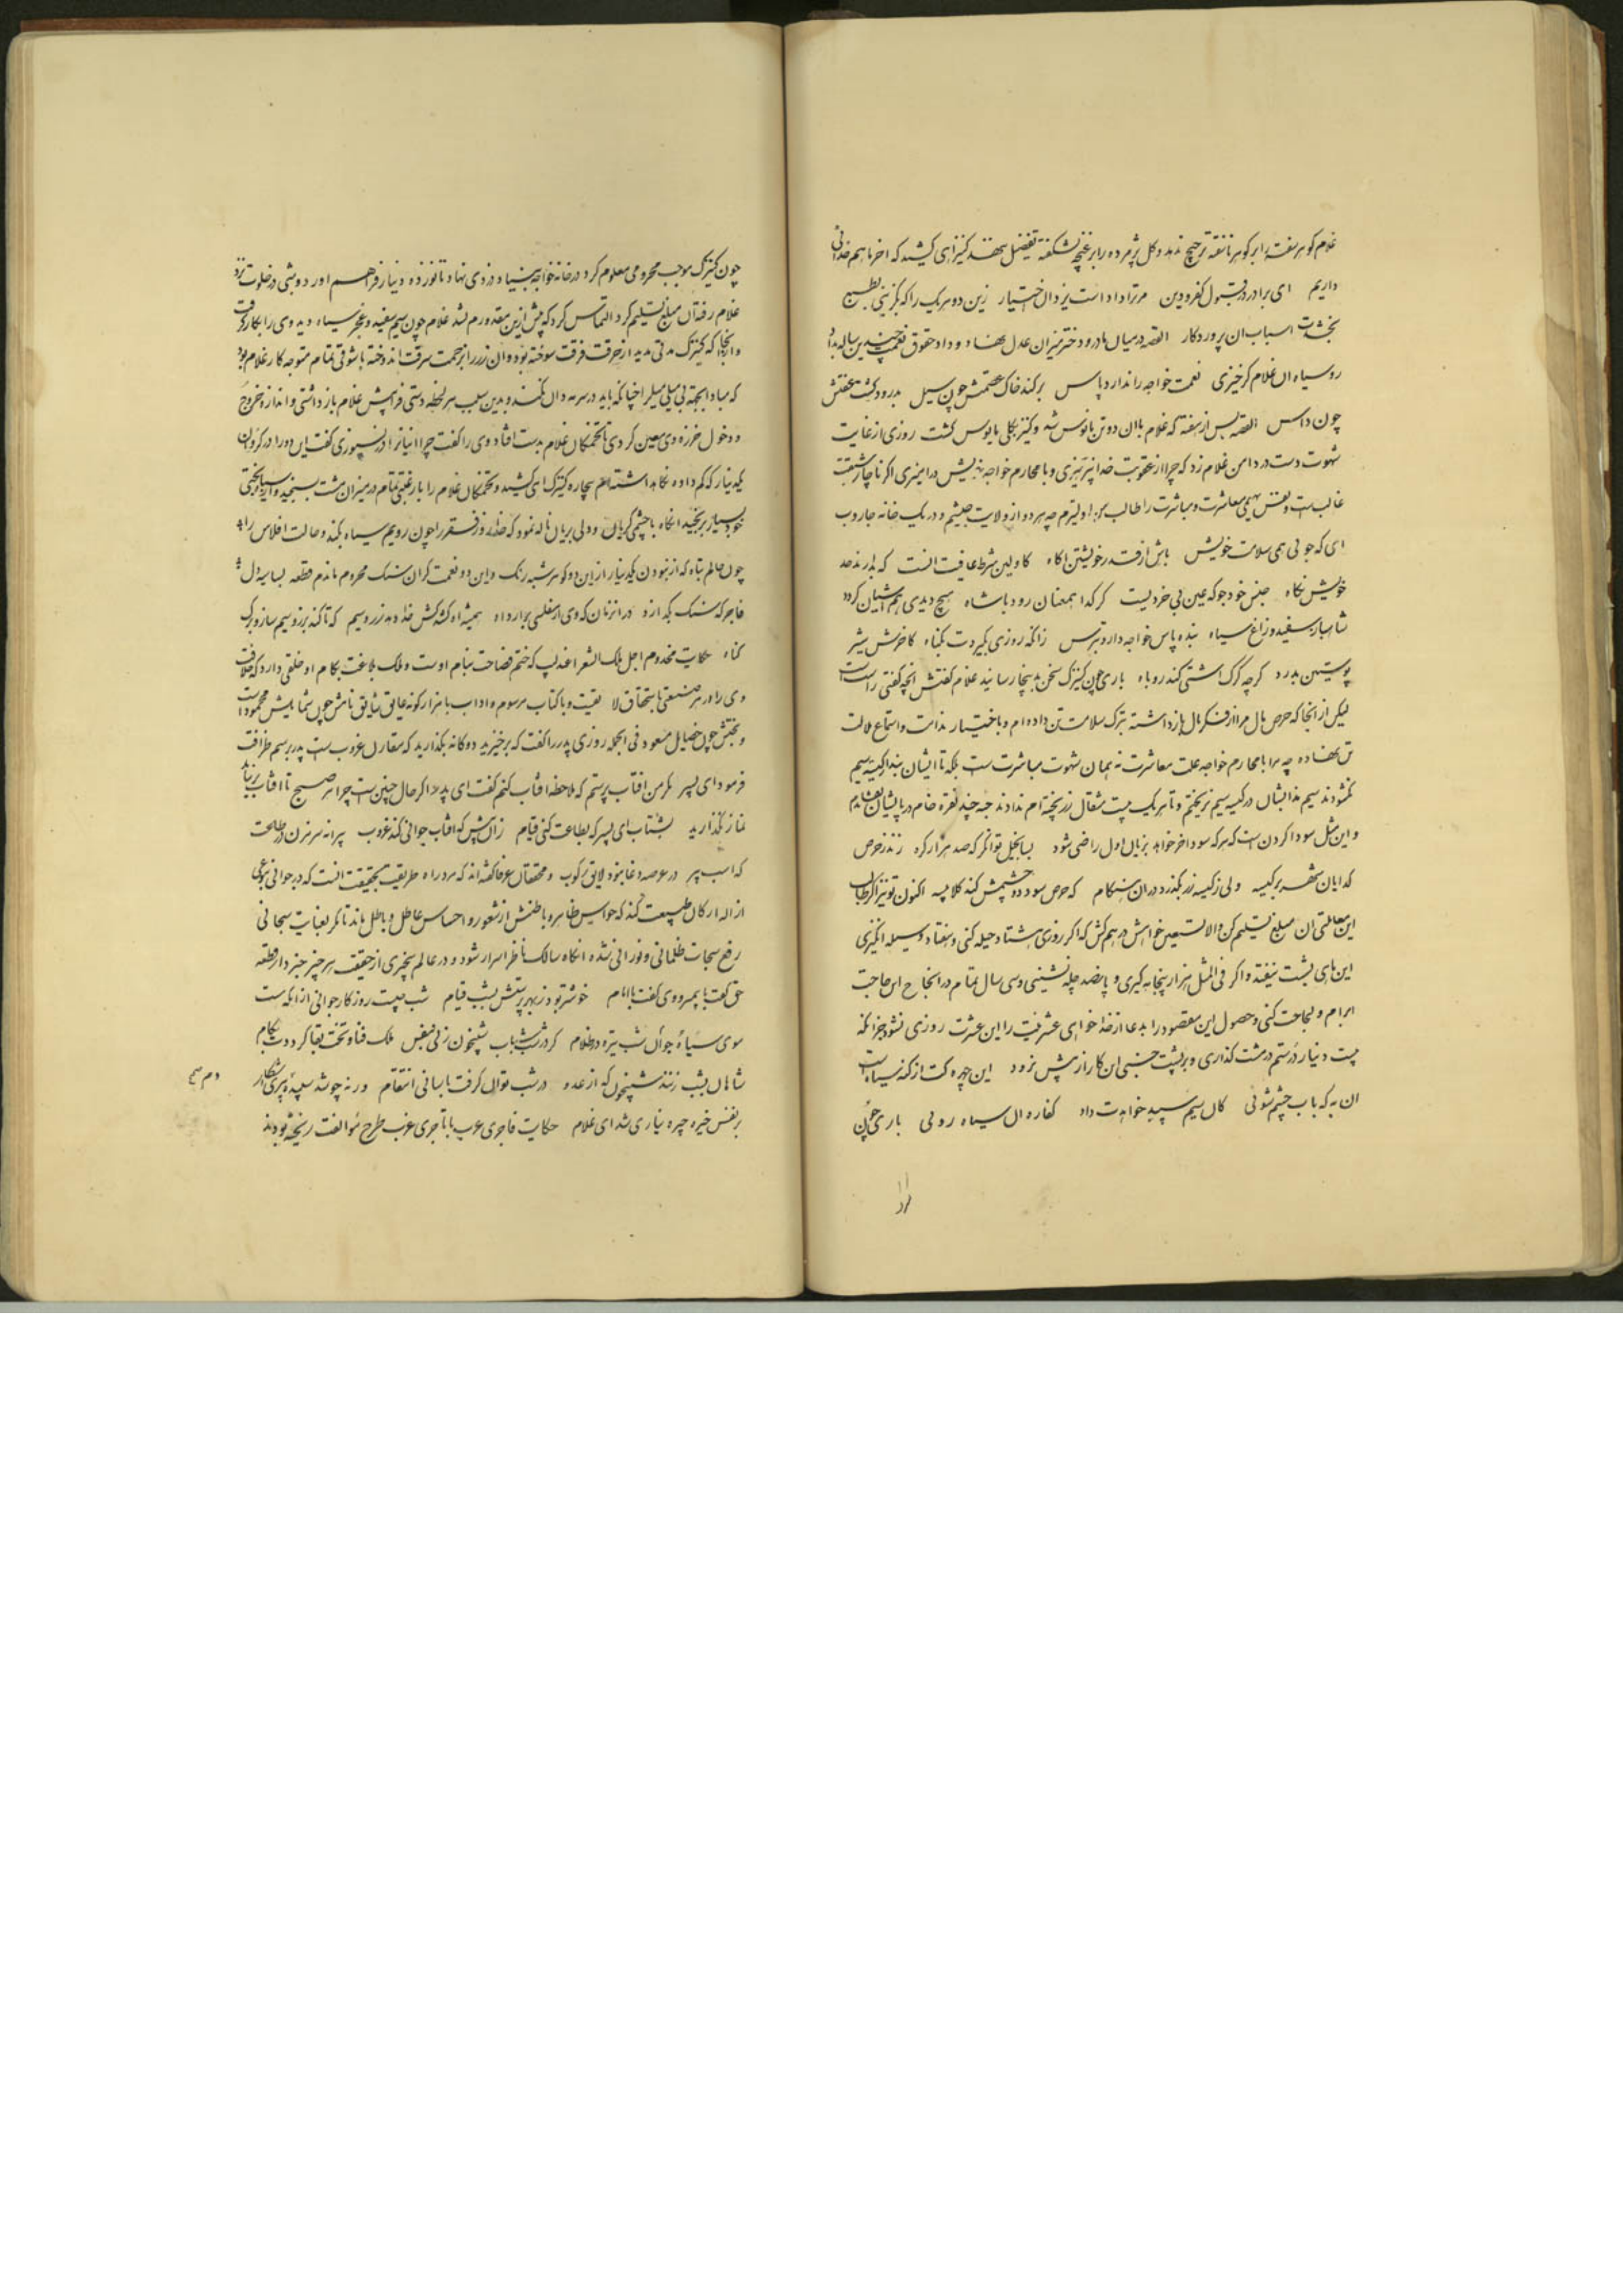 غلام گوهر سفته را بر گوهر ناسفته ترجیح ندهد و گل پژمرده را بر غنچه نشکفته تفضیل ننهند کنیز آهی کشید که آخر ما هم خدائی
داریم ای برادر در قبول کفر و دین مر ترا داداست یزدان اختیار زین دو هر یک را که بگزینی بطبع
بخشدت اسباب آن پروردگار القصه در میان مادر و دختر میزان عدل نهاد و داد حقوق نعمت چندین ساله بداد
روسیاه آن غلام کز خیزی نعمت خواجه را ندارد پاس برکند خاک عصمتش چون سیل بدرود کشت عفتش
چون داس القصه پس از هفته که غلام با آن دو تن مانوس شد و کنیز بکلی مایوس گشت روزی از غایت
شهوت دست در دامن غلام زد که چرا از عقوبت خدا نپرهیزی و با محارم خواجه خویش درآمیزی اگر ناچار شبقت
غالب است و نفس بهیمی معاشرت و مباشرت را طالب من اولیترم چه هر دو از ولایت حبشیم و در یک خانه جاروب
ای که جوئی همی سلامت خویش باش از قدر خویشتن آگاه کاولین شرط عافیت آنست که بدارند حد
خویش نگاه جنس خود جو که عین بی خردیست گر گدا همعنان رود با شاه هیچ دیدی هم آشیان گردد
شاهباز سفید و زاغ سیاه بنده پاس خواجه دار و بترس زانکه روزی بگیردت بگناه کاخرش شیر
پوستین بدرد گرچه گرگ آشتی کند روباه باری چون کنیزک سخن بدینجا رسانید غلام گفتش آنچه گفتی راست است
لیکن از آنجا که حرص مال مرا از فکر مآل بازداشته بترک سلامت تن داده ام و باختیار ندامت و استماع ملامت
تن نهاده چه مرا با محارم خواجه علت معاشرت نه همان شهوت مباشرت است بلکه تا ایشان بند از کیسه سیم
نگشودند سیم مذابشان در کیسه سیم نریختم و تا هر یک بیست مثقال زر پخته ام ندادند حبه چند نقره خام در پایشان نفشاندم
و این مثل سودا کردن است که هر که سود آخر خواهد بزیان اول راضی شود بسا بخیل توانگر که صد هزار گره زند ز حرص
گدایان شهر بر کیسه ولی ز کیسه زر بگذرد در آن هنگام که حرص سود دو چشمش کند کلاپیسه اکنون تو نیز اگر طالب
این معاملتی آن مبلغ تسلیم کن والا نستعین خواهش در هم کش که اگر روزی هشتاد حیله کنی و هفتاد وسیله انگیزی
این پای بشت نیفتد و اگر فی المثل هزار پنجاه گیری و پانصد چله نشینی و سی سال تمام در انجاح این حاجت
ابرام و لجاجت کنی و حصول این مقصود را بدعا از خدا خواهی عشر فیت را این عشرت روزی نشود جز آنکه
بیست دینار درستم در مشت گذاری و بر پشت خسبی آن کار از پیش نرود این چهره کت از گنه سیاه است
آن به که باب چشم شوئی کان سیم سپید خواهدت داد کفاره آن سیاه روئی باری چون
چون کنیزک موجب محرومی معلوم کرد در خانه خواجه بنیاد دزدی نهاد تا نوزده دینار فراهم آورد و شبی در خلوت نزد
غلام رفته آن مبلغ تسلیم کرد التماس کرد که بیش از این مقدورم نشد غلام چون سیم سفید و عجز سیاه دید وی را بکار گرفت
و از آنجا که کنیزک مدتی مدید از حرقت فرقت سوخته بود و آن زر را بزحمت سرقت اندوخته با شوقی تمام متوجه کار غلام بود
که مبادا بجهة بی میلی میل را چنانکه باید در سرمه دان نکند و بدین سبب هر لحظه دستی فراپیش غلام باز داشتی و اندازه خروج
و دخول خرزه وی معین کردی تا تخمگان غلام بدست افتاد وی را گفت چرا انبانرا در نسپوزی گفت این دو را در گرو آن
یکدینار که کم داده نگاه داشته ام بیچاره کنیزک آهی کشید و تخمگان غلام را با رغبتی تمام در میزان مشت بسنجید و از سیاه بختی
خود بسیار برنجید آنگاه با چشمی گریان و دلی بریان ناله نمود که خدایا روز فقر را چون رویم سیاه بکند و حالت افلاس را چه
چون حالم تباه که از نبودن یکدینار از این دو گوهر شبه رنگ و این دو نعمت گران سنگ محروم ماندم قطعه بسا سیه دل
فاجر که سنگ بگدازد در آنزمان که وی از مفلسی برارد آه همیشه آه کشد کش خدا دهد زر و سیم که تا کند بزر و سیم ساز و برگ
گناه حکایت مخدوم اجل ملک الشعرا عندلیب که ختم فصاحت بنام اوست و ملک بلاغت بکام او خلقی دارد که خلافت
وی را در هر صنعتی باستحقاق لایقیت و با کتاب مرسوم و آداب با هزار گونه عایق شایق نامش چون شمایلش محمود است
و بختش چون خصایل مسعود فی الجمله روزی پدر را گفت که برخیزید دوگانه بگذارید که مقارن غروب است پدر برسم ظرافت
فرمود ای پسر مگر من آفتاب پرستم که ملاحظه آفتاب کنم گفت ای پدر اگر حال چنین است چرا هر صبح تا آفتاب برنیاید
نماز نگذارید بشتاب ای پسر که بطاعت کنی قیام زان پیش که آفتاب جوانی کند غروب پیرانه سر مزن در طاعت
که اسب پیر در عرصه وغا نبود لایق رکوب و محققان عرفا گفته اند که مرد راه طریقت بحقیقت آنست که در جوانی نوعی
ازاله ارکان طبیعت کند که حواس ظاهر و باطنش از شعور و احساس عاطل و باطل ماند تا مگر بعنایت سبحانی
رفع سبحات ظلمانی و نورانی شده آنگاه سالک ناظر اسرار شود و در عالم بیخبری از حقیقت هر چیز خبردار قطعه
حق گفت با پیمبر و وی گفت با انام خوشتر بود ز بهر پرستش بشب قیام شب چیست روزگار جوانی از آنکه هست
موی سیاه جوان شب تیره در ظلام گر در شب شباب شبیخون زنی بنفس ملک فنا و تخت بقا گرددت بکام
شاهان بشب زنند شبیخون که از عدو در شب توان گرفت بآسانی انتقام ورنه چو شد سپیده پیری آشکار
بر نفس خیره چیره نیاری شد ای غلام حکایت فاجری عرب با تاجری عزب طرح موالفت ریخته بودند